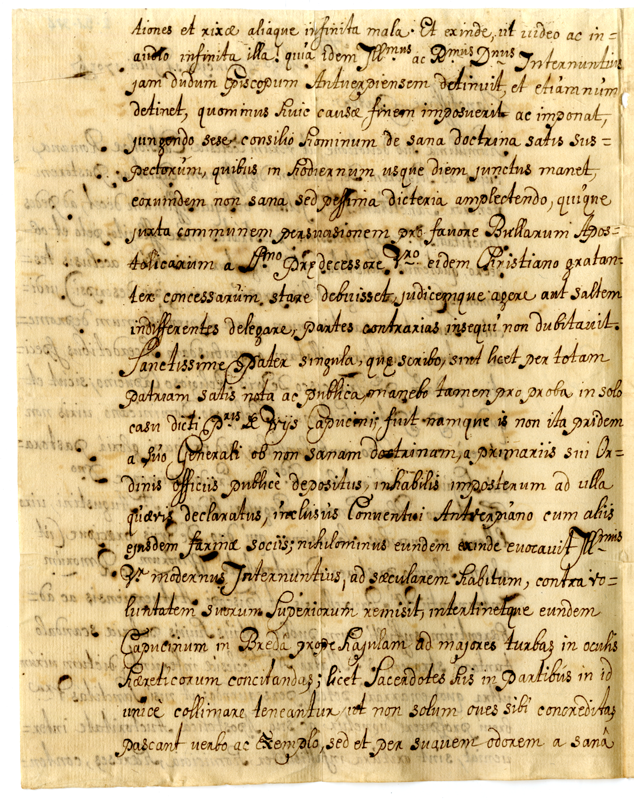 tiones et rixæ aliaque infinita mala. Et exinde, ut video ac in=
audio infinita illa! quia idem Ill.mus ac R.mus D.nus Internuntius
jam dudum Episcopum Antverpiensem detinuit, et etiam num
detinet, quominus huic causæ finem imposuerit ac imponat,
jungendo sese consilio hominum de sana doctrina satis sus=
pectorum, quibus in hodiernum usque diem junctus manet,
eorumdem non sana sed pessima dicteria amplectendo, quique
juxta communem persuasionem præ favore Bullarum Apos=
tolicarum a S.mo Prædecessore V.ro eidem Christiano gratan=
ter concessarum, stare debuisset, judicemque agere aut saltem
indifferentes delegare, partes contrarias insequi non dubitavit.
Sanctissime Pater singula, quæ scribo, sint licet per totam
patriam satis nota ac publica, manebo tamen pro proba in solo
casu dicti P.ris Capucini; fuit namque is non ita pridem
a suo Generali ob non sanam doctrinam, a primariis sui Or=
dinis officiis publicè depositus, inhabilis imposterum ad ulla
quævis declaratus, inclusus Conventui Antverpiano cum aliis
ejusdem farinæ sociis; nihilominus eundem exinde evocavit Ill.mus
V.r modernus Internuntius, ad sæcularem habitum, contra vo=
luntatem suorum Superiorum remisit, intertinetque eundem
Capucinum in Bredâ prope Hajulam ad majores turbas in oculis
Hæreticorum concitandas; licet Sacerdotes his in Partibus in id
unicè collimare teneantur, ut non solum oves sibi concreditas
pascant verbo ac Exemplo, sed et per suavem odorem a sanâ